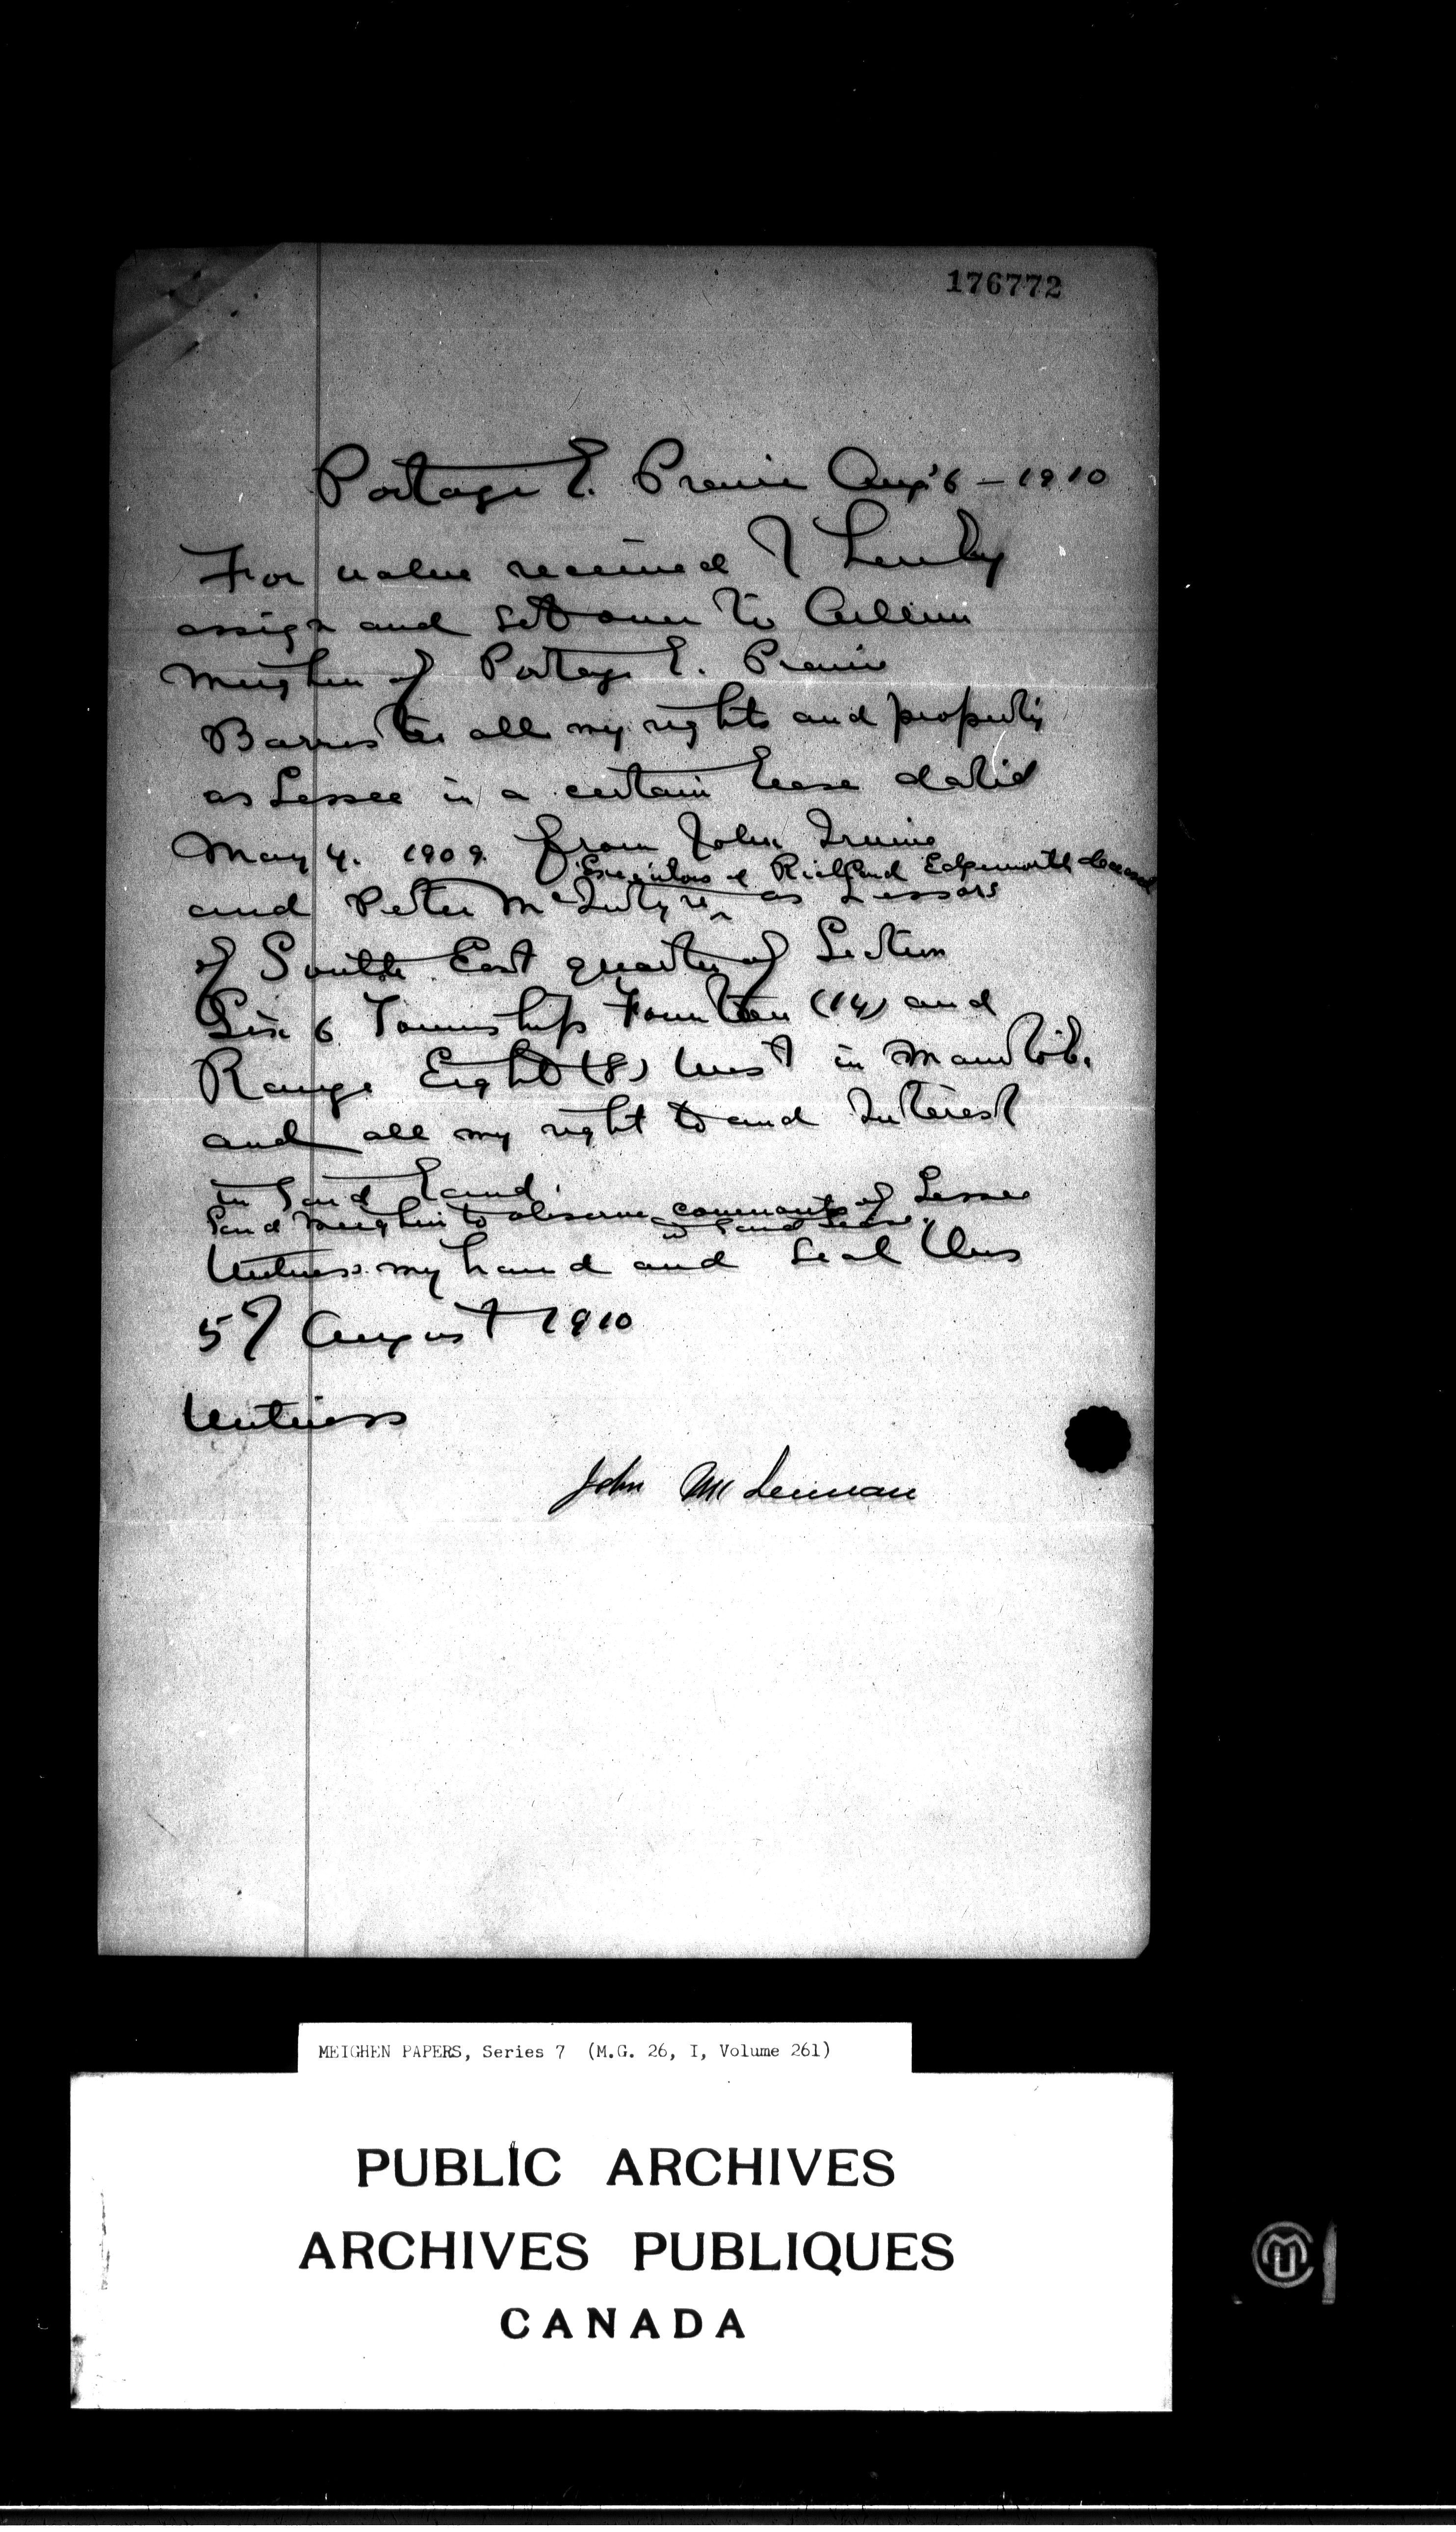 176772
Portage L. Prairie Aug' 6 - 1910
For value received I hereby
assign and set over to Arthur
Meighen of Portage L. Prairie
Barrister all my rights and property
as Lessee in a certain lease dated
May 4. 1909. from John Irvine
Executors of Richard Edgeworth deceased
and Peter McIntyre ‸ as Lessors
of South East quarter of Section
Six 6 Township Fourteen (14) and
Range Eight (8) West in Manitoba
and all my right to and Interest
in said Land.
Said Meighen to observe covenants of Lessee
in said Lease.
Witness my hand and seal this
5th August 1910
Witness
John McLennan
MEIGHEN PAPERS, Series 7 (M.G. 26, I, Volume 261)
PUBLIC ARCHIVES
ARCHIVES PUBLIQUES
CANADA